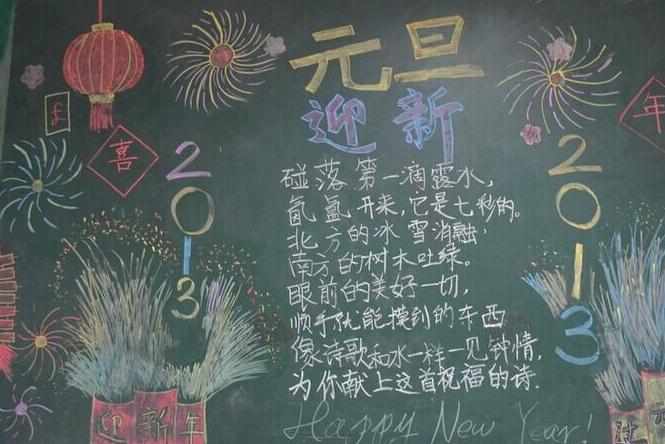 元旦
迎新
喜
年
2013
2013
碰落第一滴露水，
氤氲开来，它是七彩的。
北方的冰雪消融，
南方的树木吐绿。
眼前的美好一切，
顺手就能摸到的东西
像诗歌和水一样一见钟情，
为你献上这首祝福的诗.
Happy New Year!
迎新年
过